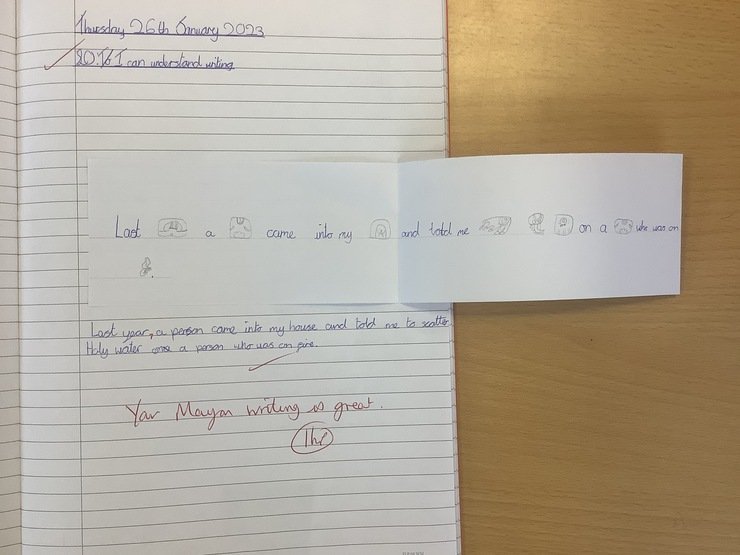 Thursday 26th January 2023
I can understand writing
Last a came into my and told me on a who was on
.
Last year, a person came into my house and told me to scatter
Holy water one a person who was on fire.
Your Mayan writing is great.
1hp